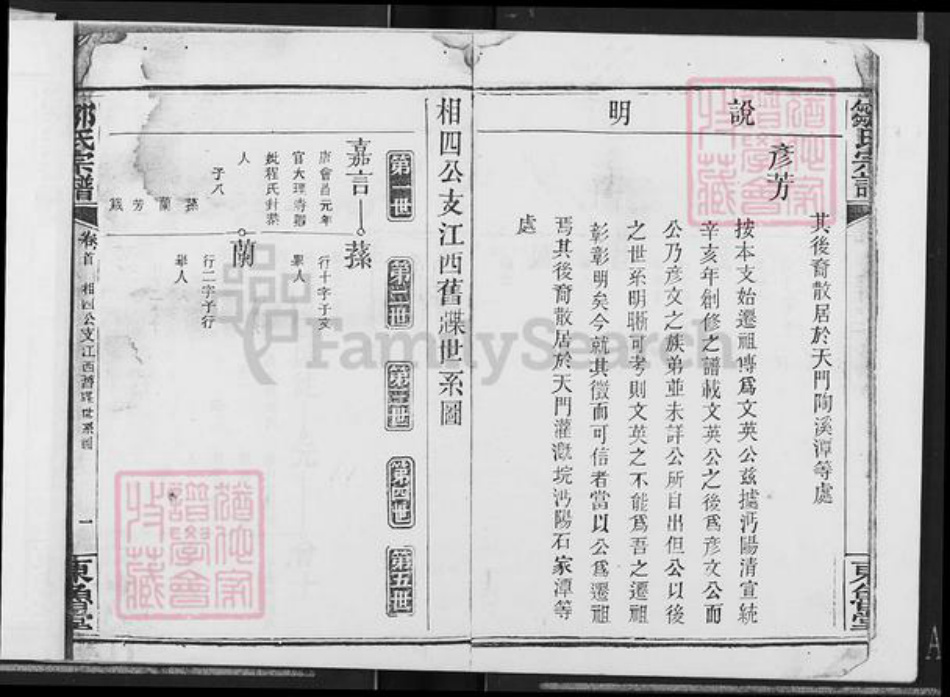 鄒氏宗譜
東魯堂
說明
其後裔散居於天門陶溪潭等處
彥芳
按本支始遷祖傳為文英公茲據沔陽清宣統
辛亥年創修之譜載文英公之後為彥文公而
公乃彥文之族弟並未詳公所自出但公以後
之世系明晰可考則文英之不能為吾之遷祖
彰彰明矣今就其徵而可信者當以公為遷祖
焉其後裔散居於天門灌溉垸沔陽石家潭等
處
相四公支江西舊諜世系圖
第一世
第二世
第三世
第四世
第五世
嘉言
唐會昌元年
官大理寺卿
妣程氏封恭
人
子八
蓀 蘭 芳
蓀
行十字子文
舉人
蘭
行二字子行
舉人
鄒氏宗譜
卷首
相四公支江西舊諜世系圖
一
東魯堂
FamilySearch
譜學會
收藏